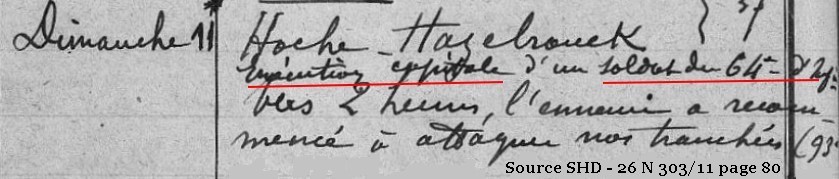 Dimanche 11 Hoche - Hazebrouck
Exécution capitale d'un soldat du 64e d'Inf:
Vers 2 heures, l'ennemi a recom-
mencé à attaquer nos tranchées (93e
Source SHD - 26 N 303/11 page 80